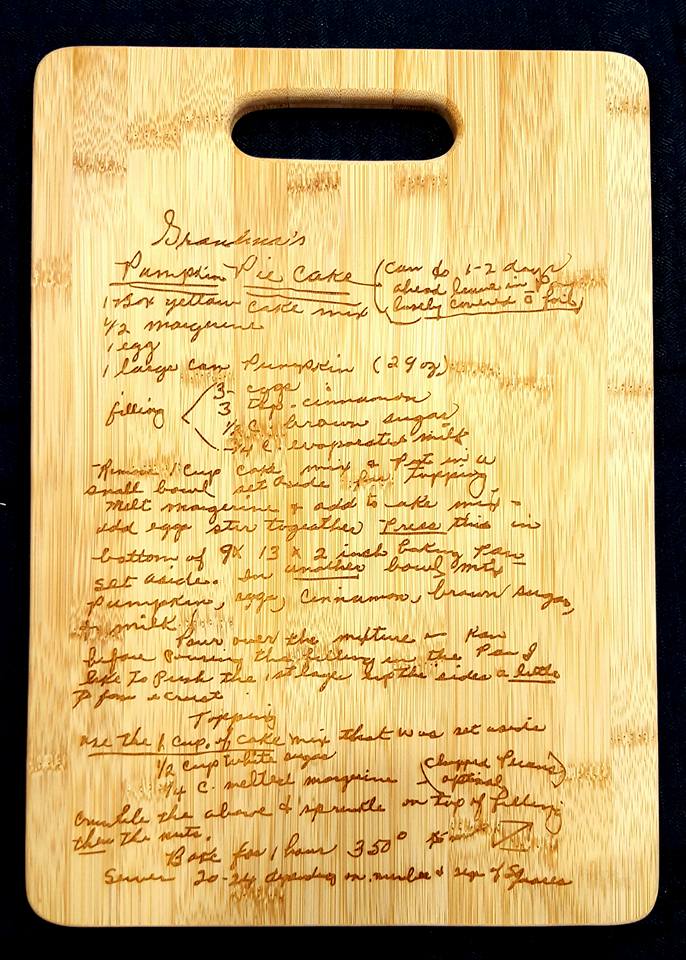 Grandma's
Pumpkin Pie Cake (can do 1-2 days
ahead leave in Pan
losely covered c̄ foil)
1 Box yellow cake mix
1/2 margerine
1 egg
1 large can Pumpkin (29 oz)
filling
3- eggs
3 tsp. cinnamon
1/2 C. brown sugar
1/4 C. evaporated milk
-Remove 1 cup cake mix & Put in a
small bowl set aside for topping
melt margerine & add to cake mix -
add egg stir togeather Press this in
bottom of 9 X 13 X 2 inch baking Pan
set aside. In another bowl mix
Pumpkin, eggs, cinnamon, brown sugar,
& milk
Pour over the mixture in Pan
before Pouring the filling in the Pan I
like to Push the 1st layer up the sides a little
to form a crust
Topping
use the 1 cup. of cake mix that was set aside
1/2 cup white sugar
1/4 C. melted margerine
(chopped Pecans)
optional
crumble the above & sprinkle on top of filling
then the nuts.
Bake for 1 hour 350°
Serves 20-24 depending on number & size of Squares